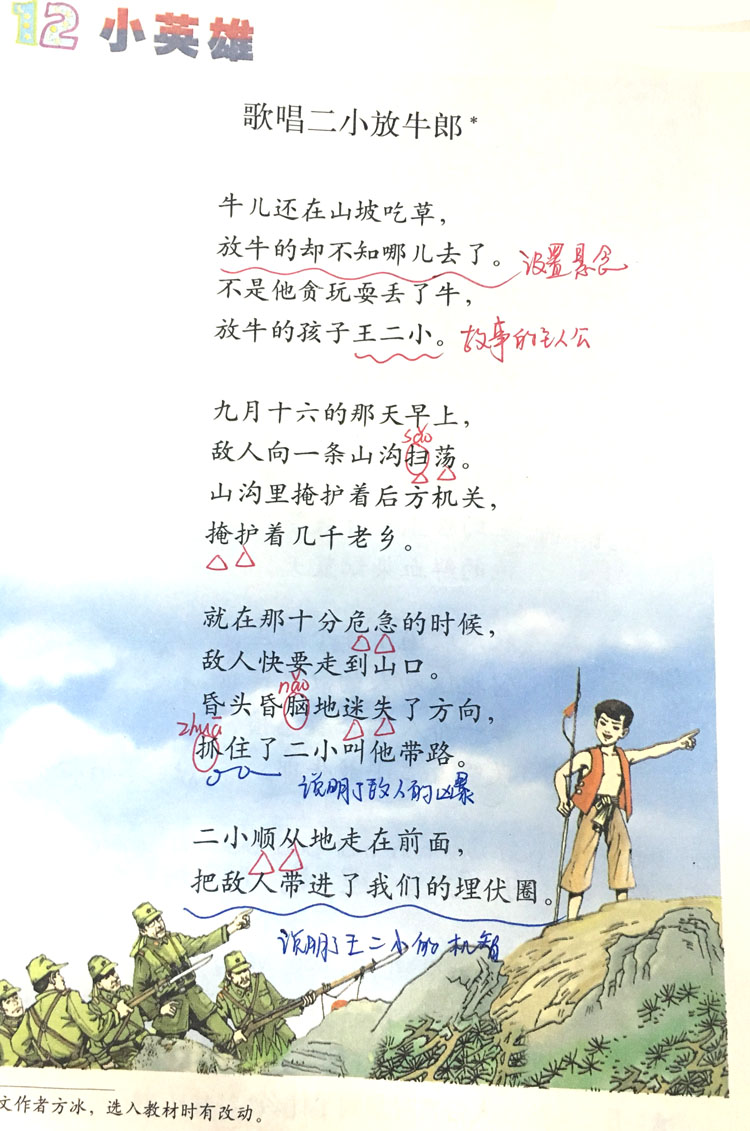 12 小英雄
歌唱二小放牛郎*
牛儿还在山坡吃草，
放牛的却不知哪儿去了。 设置悬念
不是他贪玩耍丢了牛，
放牛的孩子王二小。 故事的主人公
九月十六的那天早上，
sǎo
敌人向一条山沟扫荡。
山沟里掩护着后方机关，
掩护着几千老乡。
就在那十分危急的时候，
敌人快要走到山口。
nǎo
昏头昏脑地迷失了方向，
zhuā
抓住了二小叫他带路。
说明了敌人的凶暴
二小顺从地走在前面，
把敌人带进了我们的埋伏圈。
说明了王二小的机智
文作者方冰，选入教材时有改动。